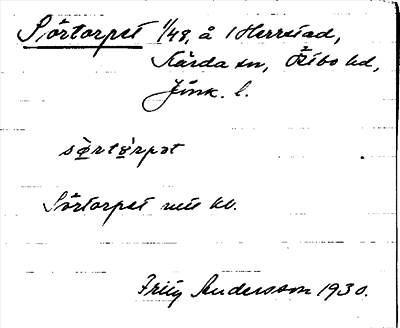 Sörtorpet 1/48, å 1 Herrstad,
Kärda sn, Östbo hd,
Jönk. l.
sö̀rtòrpət
Sörtorpet
Fritz Andersson 1930.